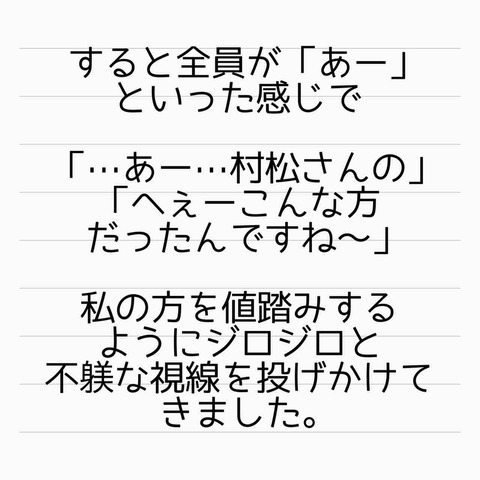 すると全員が「あー」
といった感じで
「…あー…村松さんの」
「へぇーこんな方
だったんですね〜」
私の方を値踏みする
ようにジロジロと
不躾な視線を投げかけて
きました。